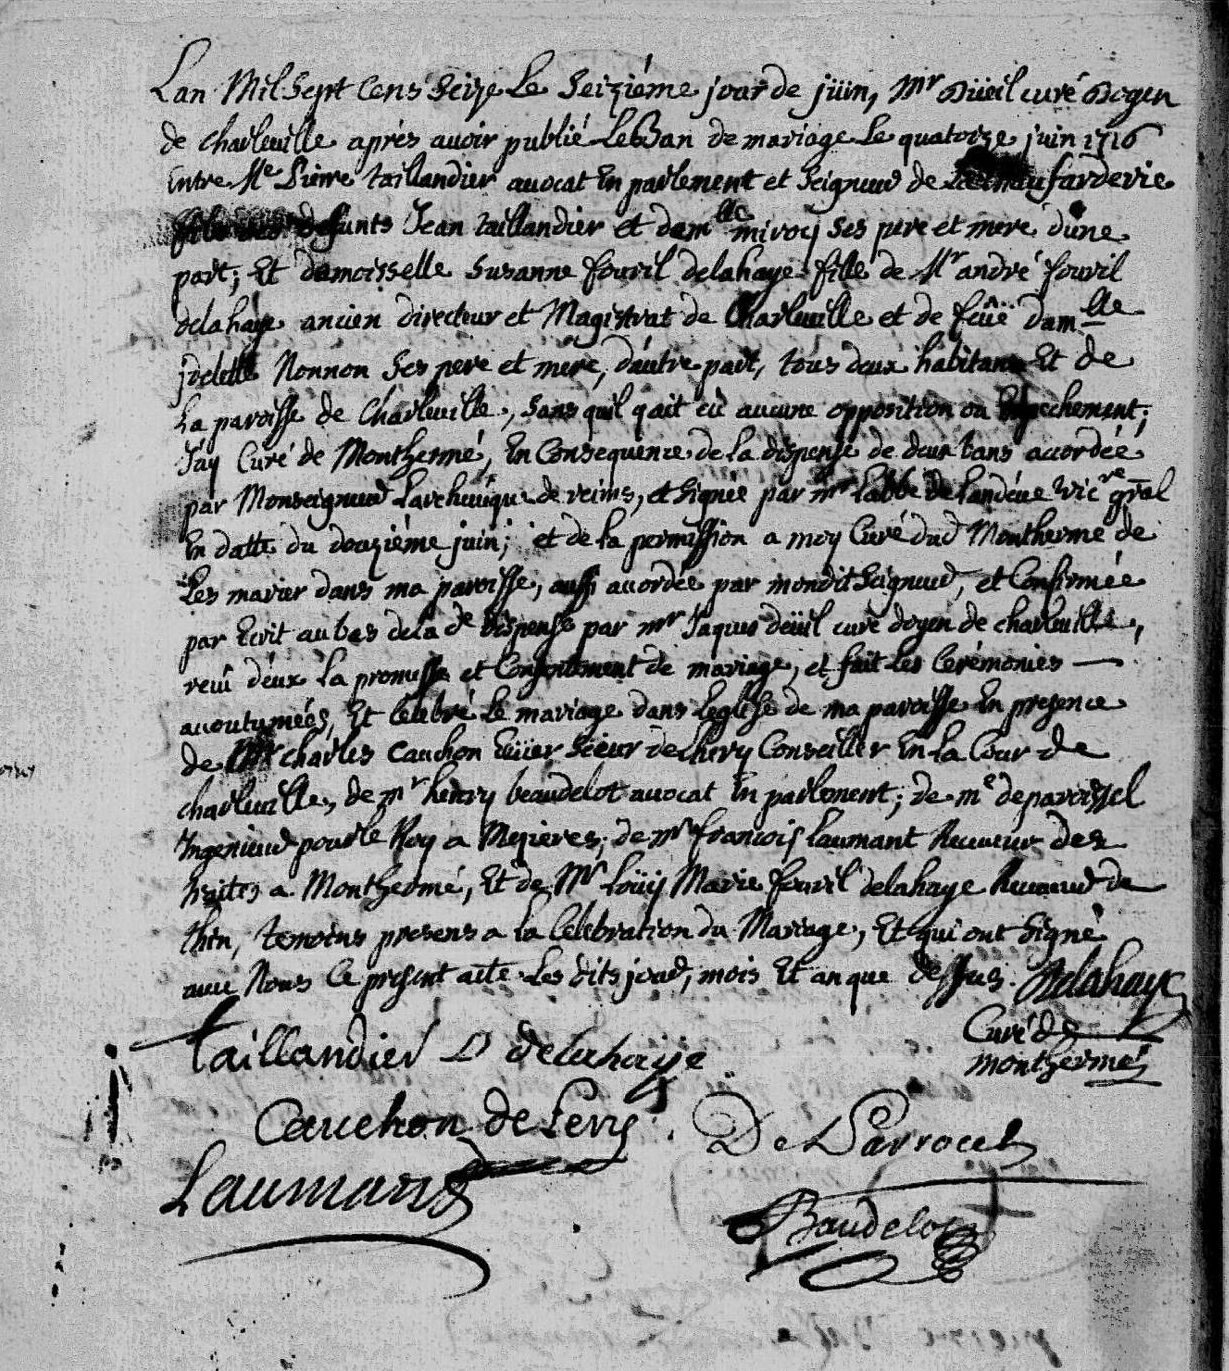 Lan Mil Sept Cens Seize Le Seiziéme jour de jüin, Mr Düeil curé Dogen
de charleuille aprés auoir publié Le Ban de mariage Le quatorze juin 1716
Entre Me Pierre taillandier auocat En parlement et Seigneur de
defunts Jean taillandier et damlle miroy Ses pere et mere dúne
part; Et damoisselle Susanne fouril delahaye fille de Mr andré fouril
delahaye ancien directeur et Magistrat de Charleuille et de feüe damlle
Nonnon Ses pere et mere, dáutre part, tous deux habitans Et de
La paroisse de Charleuille, Sans quil y ait eü aucune opposition ou Empechement;
Jáy Curé de Monthermé, En Consequence de la dispense de deux bans accordée
par Monseigneur Larcheueque de reims, et Signée par mr Labbé de Vicre gnãl
En datte du douziéme juin; et de la permission a moy Curé dud Monthermé de
Les marier dans ma paroisse, aussi accordée par mondit Seigneur, et Confirmée
par Ecrit au bas de la de dispense par mr Jaques deüil curé doyen de charleuille,
receü déux La promesse et Consentement de mariage, et fait Les Cerémonies
accoutumées, Et Celebré Le mariage dans Leglise de ma paroisse En presence
de Mr charles Cauchon Sieur de Conseiller En la Cour de
charleuille, de mr henry beaudelot auocat En parlement; de me de
Ingenieur pour le Roy a Mezieres; de mr francois Laumant Receueur des
traites a Monthermé, Et de Mr Loüy Marie fouril delahaye Receueur de
thin, temoins presens a la Celebration du Mariage, Et qui ont Signé
auec Nous Ce present acte Les dits jour, mois Et an que dessus. Delahaye
Curé de
monthermé
Taillandier D delahaye
Cauchon de Lery. De Parrocel
Laumant
Baudelot